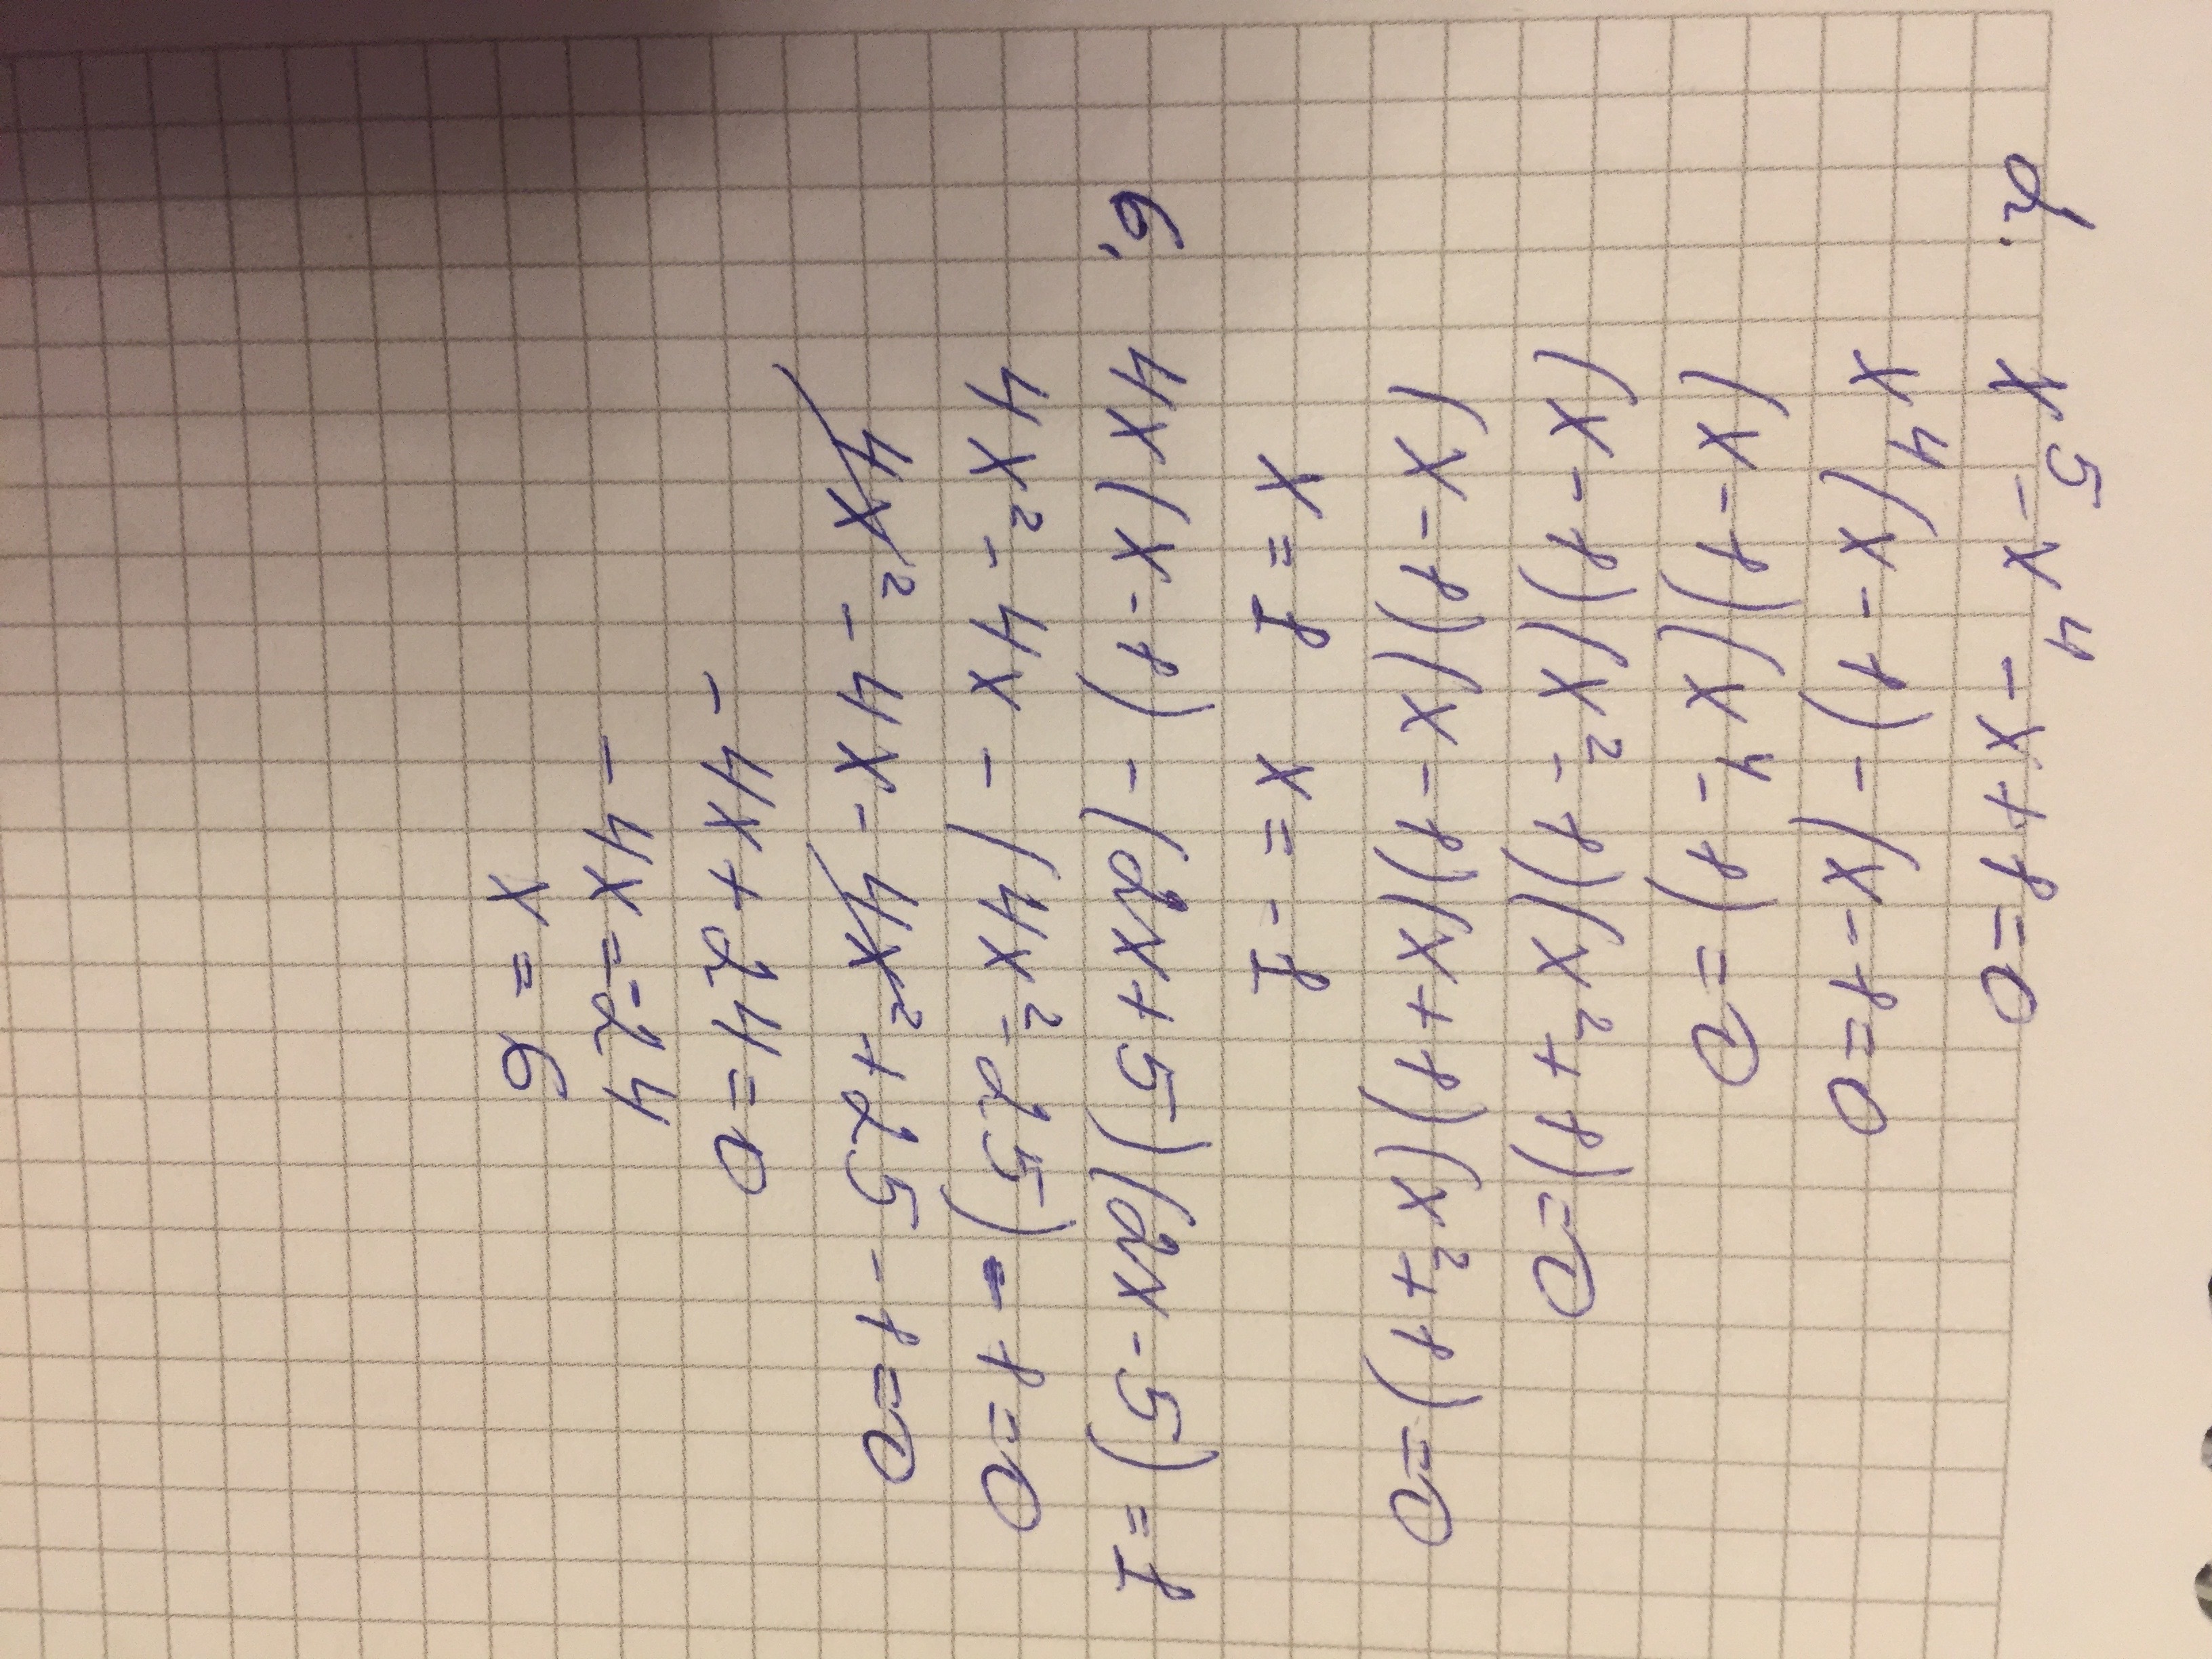 2. x⁵ - x⁴ - x + 1 = 0
x⁴(x - 1) - (x - 1 = 0
(x - 1)(x⁴ - 1) = 0
(x - 1)(x² - 1)(x² + 1) = 0
(x - 1)(x - 1)(x + 1)(x² + 1) = 0
x = 1 x = -1
6. 4x(x - 1) - (2x + 5)(2x - 5) = 1
4x² - 4x - (4x² - 25) - 1 = 0
4x² - 4x - 4x² + 25 - 1 = 0
- 4x + 24 = 0
- 4x = -24
x = 6